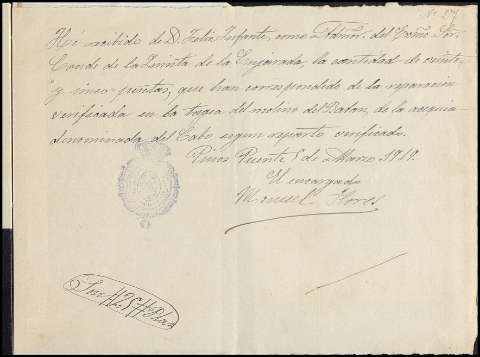 Nº 27
He recibido de D. Felix Infante, como Admor. del Excmo. Sor.
Conde de la Quinta de la Enjarada, la cantidad de veinte
y cinco pesetas, que han correspondido de la reparacion
verificada en la togea del molino del Batan, de la acequia
denominada del Cabo segun reparto verificado.
Pinos Puente 5 de Marzo 1919.
El encargado
Manuel Flores
Son #25# Ptas